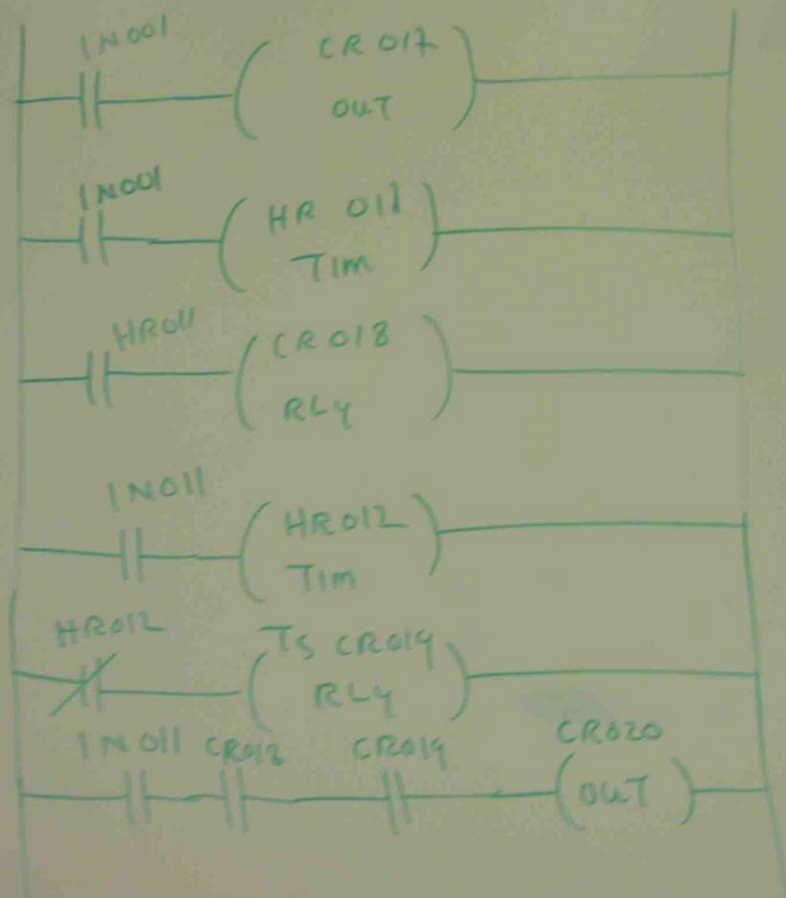 IN001
CR017
OUT
IN001
HR 011
TIM
HR011
CR018
RLY
IN011
HR012
TIM
HR012
TS CR019
RLY
IN011 CR018 CR019 CR020
OUT